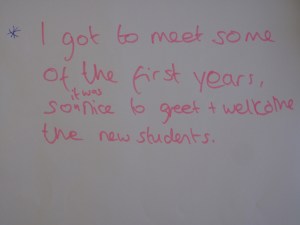 * I got to meet some
of the first years,
so it was nice to geet + welcome
the new students.